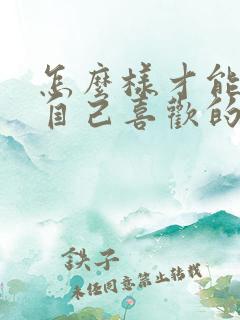 怎麼樣才能
自己喜歡的
鉄子
未任同意禁止转载